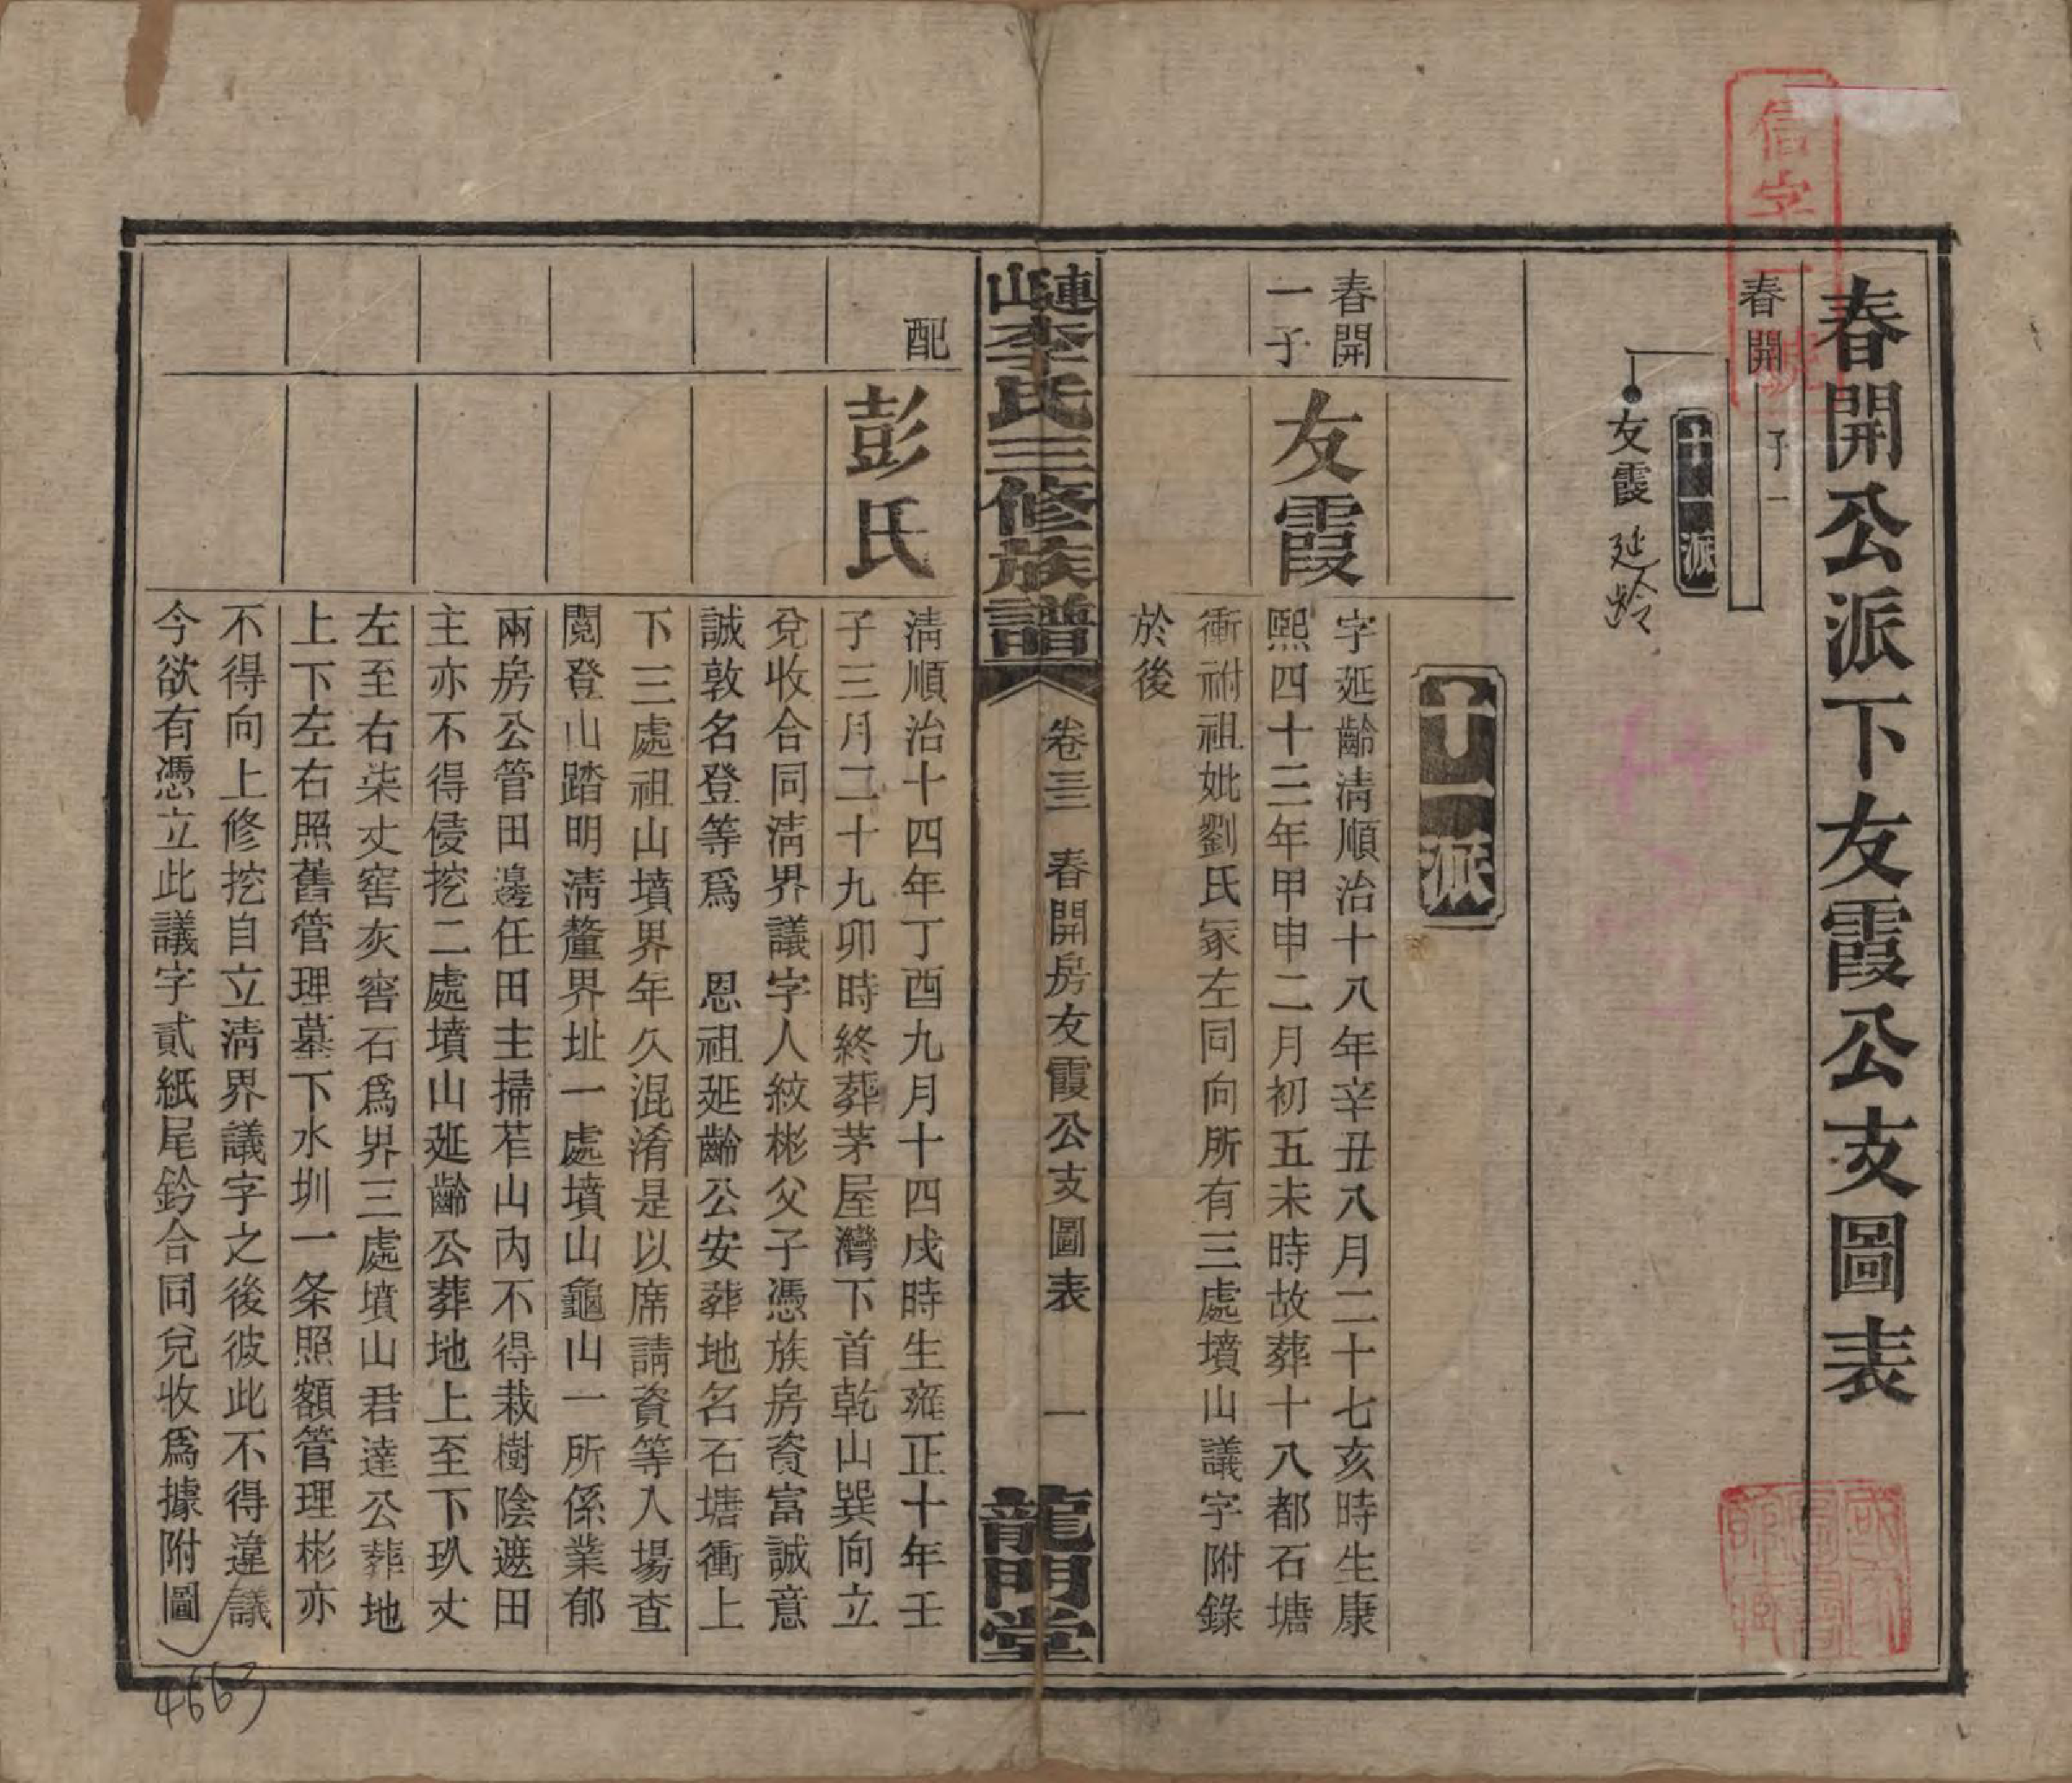 春開公派下友霞公支圖表
信字一號
春開
子一
十一派
友霞 延龄
十一派
春開
一子
友霞
字延齡清順治十八年辛丑八月二十七亥時生康
熙四十三年甲申二月初五未時故葬十八都石塘
衝祔祖妣劉氏冢左同向所有三處墳山議字附錄
於後
連山李氏三修族譜
卷三三 春開房友霞公支圖表 一
龍門堂
配
彭氏
淸順治十四年丁酉九月十四戌時生雍正十年壬
子三月二十九卯時終葬茅屋灣下首乾山巽向立
兌收合同淸界議字人紋彬父子憑族房資富誠意
誠敦名登等爲 恩祖延齡公安葬地名石塘衝上
下三處祖山墳界年久混淆是以席請資等入場查
閱登山踏明淸釐界址一處墳山龜山一所係業郁
兩房公管田邊任田主掃茬山內不得栽樹陰遮田
主亦不得侵挖二處墳山延齡公葬地上至下玖丈
左至右柒丈窖灰窖石爲界三處墳山君達公葬地
上下左右照舊管理墓下水圳一条照額管理彬亦
不得向上修挖自立淸界議字之後彼此不得違議
今欲有憑立此議字貳紙尾鈐合同兌收爲據附圖
4663